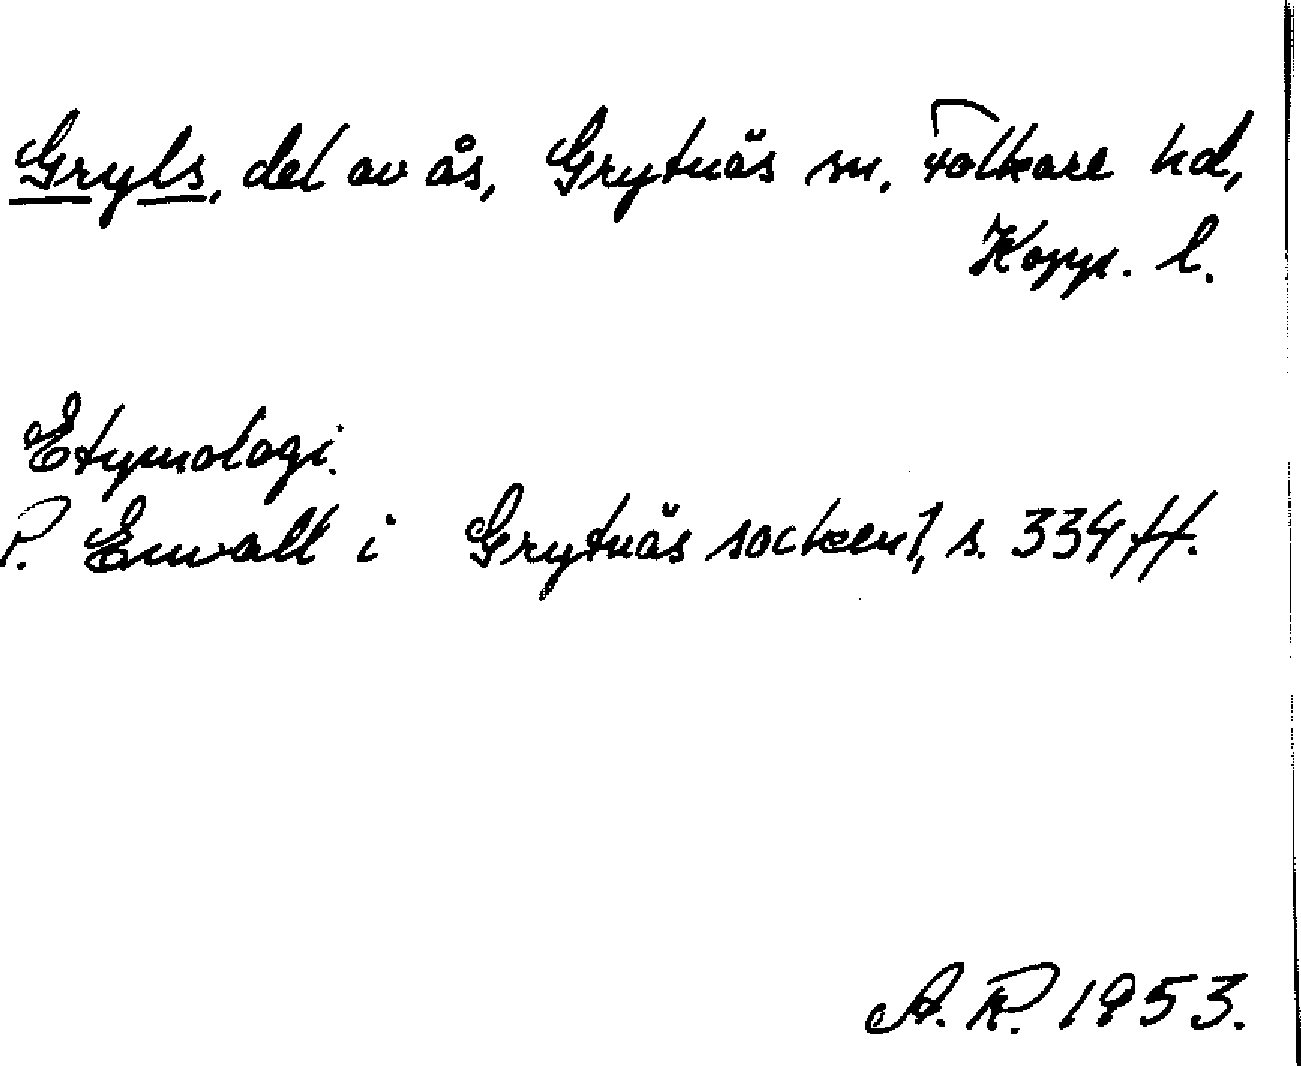 Gryls, del av ås, Grytnäs sn, Folkare hd,
Kopp. l.
Etymologi.
P. Envall i Grytnäs socken 1, s. 334 ff.
A. R. 1953.